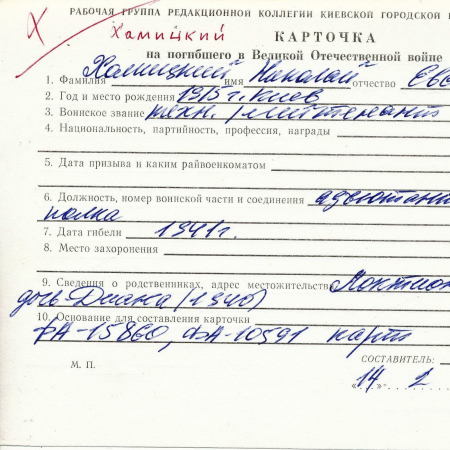 РАБОЧАЯ ГРУППА РЕДАКЦИОННОЙ КОЛЛЕГИИ КИЕВСКОЙ ГОРОДСКОЙ
Х Хамицкий КАРТОЧКА
на погибшего в Великой Отечественной войне
1. Фамилия Хамицкий имя Николай отчество Евс
2. Год и место рождения 1913 г. Киев
3. Воинское звание техн. лейтенант
4. Национальность, партийность, профессия, награды
5. Дата призыва и каким райвоенкоматом
6. Должность, номер воинской части и соединения адъютант
полка
7. Дата гибели 1941 г.
8. Место захоронения
9. Сведения о родственниках, адрес местожительства Локтион
дочь - Диана (1940)
10. Основание для составления карточки
ФА-15860, ФА-10591 карт
СОСТАВИТЕЛЬ:
М. П.
«14» 2